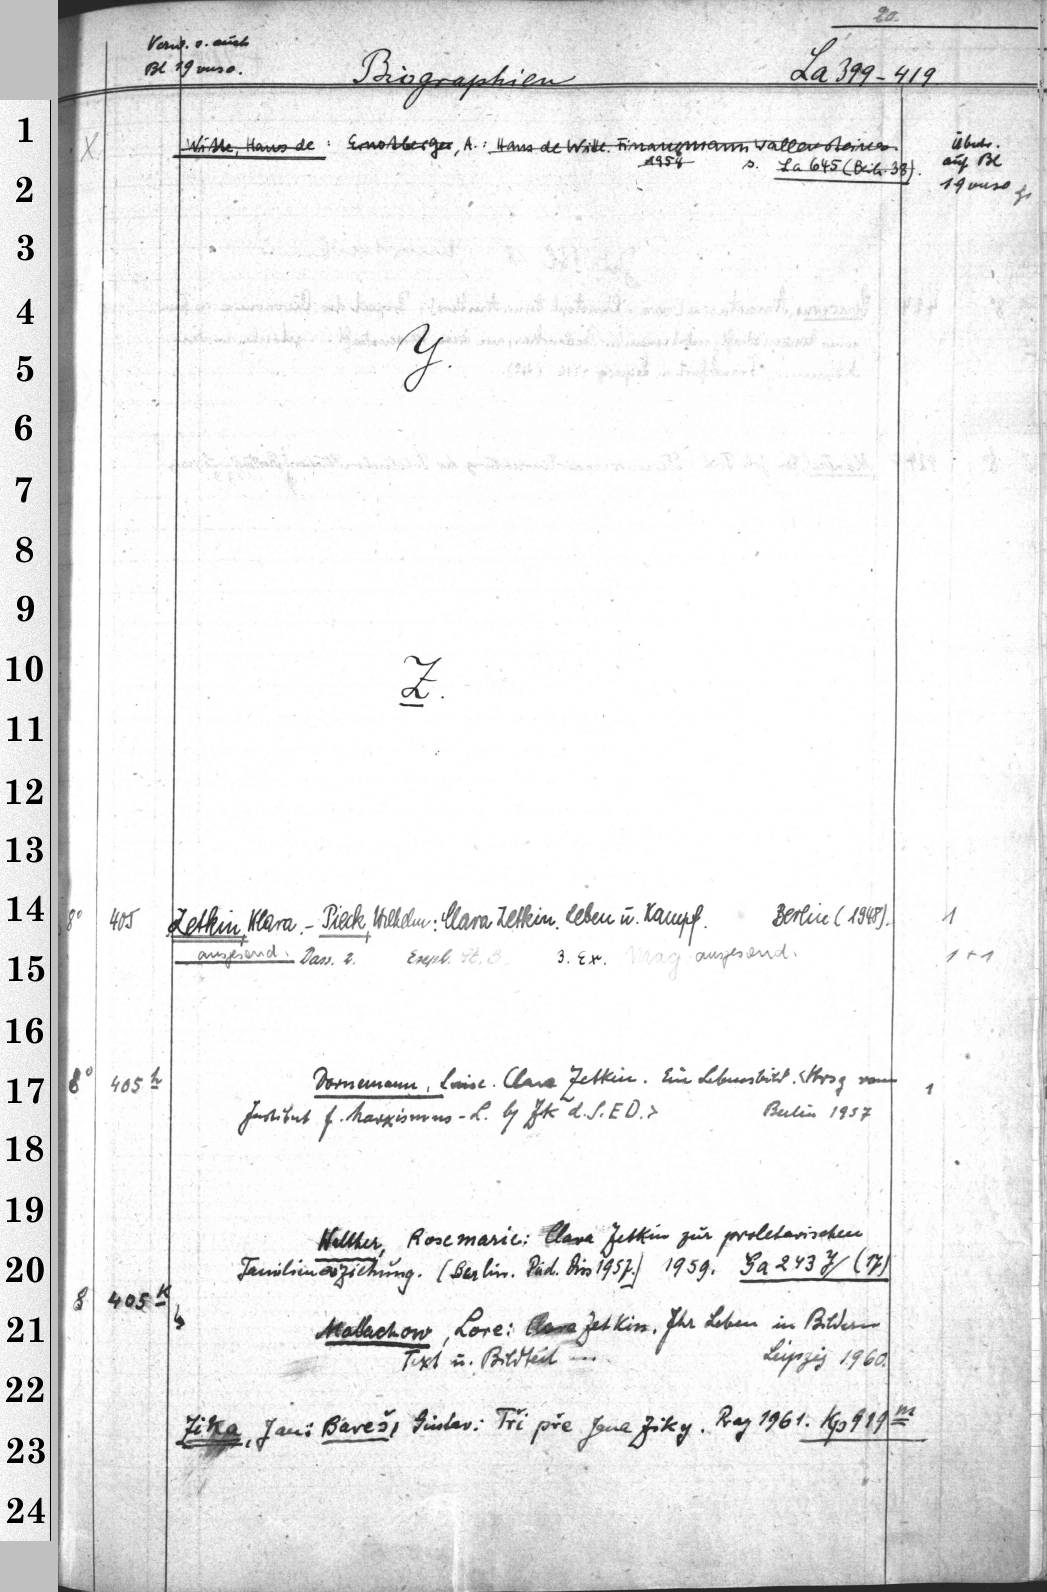 20.
Verw. s. auch
Bl 19 verso.
Biographien
La 399-419
X
Witte, Hans de : Ernstberger, A.: Hans de Witte. Finanzmann Wallensteins.
1954 s. La 645 (Beih. 38).
Übertr.
auf Bl
19 verso
Y.
Z.
8° 405 Zetkin, Klara. - Pieck, Wilhelm: Clara Zetkin. Leben u. Kampf. Berlin (1948). 1
ausgesond. Dass. 2. Exepl. St. B. 3. Ex. Mag ausgesond. 1 + 1
8° 405 h Dornemann, Luise. Clara Zetkin. Ein Lebensbild. <Hrsg vom 1
Institut f. Marxismus-L. b ZK d. S.E D.> Berlin 1957
Walther, Rosemarie: Clara Zetkin zur proletarischen
Familienerziehung. (Berlin. Päd. Diss 1957.) 1959. Ga 243 y (17)
8 405 k
Mallachow, Lore: Clara Zetkin. Ihr Leben in Bildern
Text u. Bildteil ... Leipzig 1960.
Zika, Jan: Bareš, Gustav: Tři pře Jana Ziky. Prag 1961. Kp 919 m
1
2
3
4
5
6
7
8
9
10
11
12
13
14
15
16
17
18
19
20
21
22
23
24